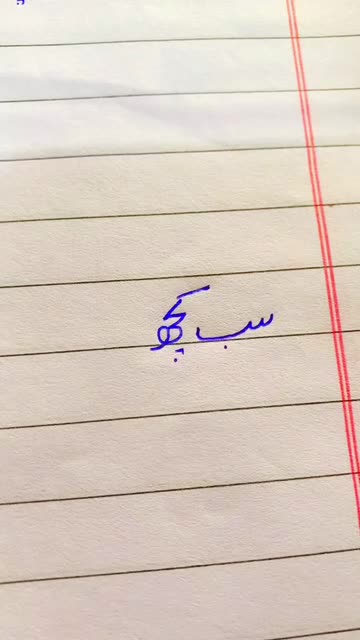 سب کچھ